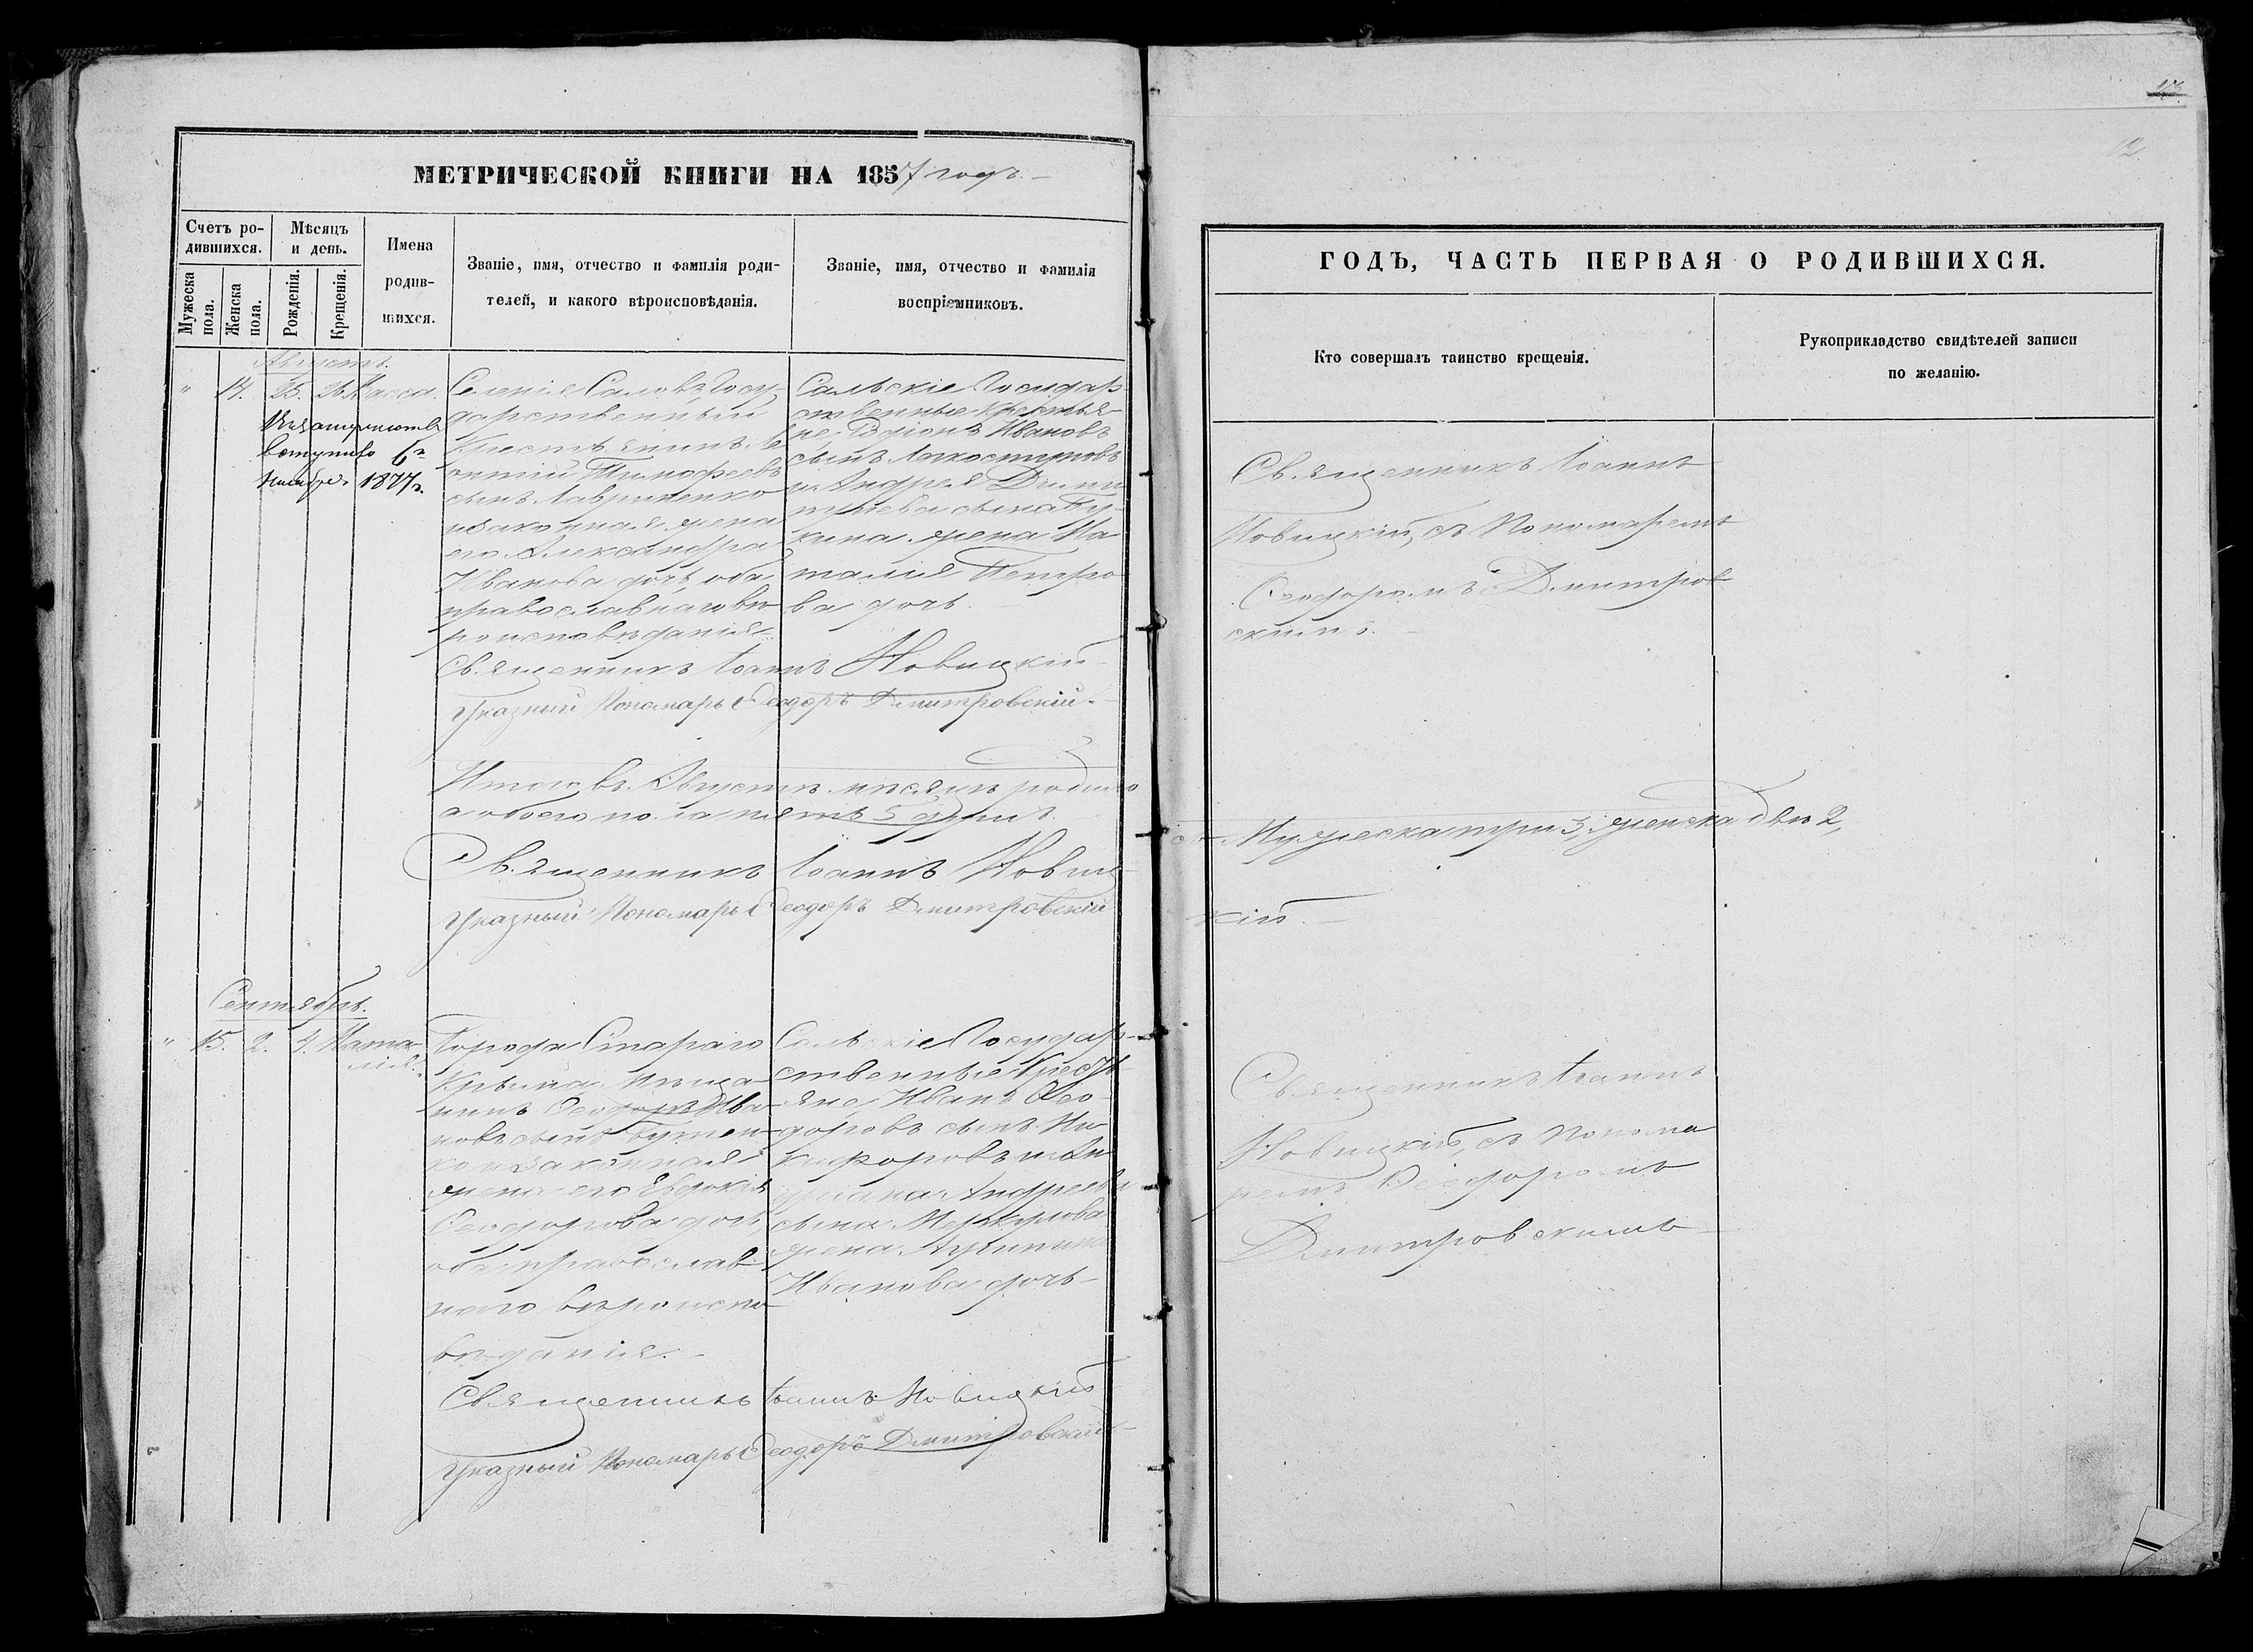 МЕТРИЧЕСКОЙ КНИГИ НА 1857 годъ.
Счетъ ро-
дившихся.
Мѣсяцъ
и день.
Имена
родив-
шихся.
Званіе, имя, отчество и фамилія роди-
телей, и какого вѣроисповѣданія.
Званіе, имя, отчество и фамилія
воспріемниковъ.
Мужеска
пола.
Женска
пола.
Рожденія.
Крещенія.
Августъ.
" 14. 25. 26. Васса.
вступило 6го
Ноября 1877г.
Селенія Саловъ Госу
дарственный
Крестьянинъ Ле
онтій Тимофеевъ
сынъ Лавриненко
и законная жена
его Александра
Иванова дочь, оба
православнаго вѣ
роисповѣданія
Сальскіе Государ
ственные Крестья-
не, Родіонъ Ивановъ
сынъ
и Андрея Дими
тріева сына
кина жена На
талія Петро
ва дочь.
Священникъ Іоаннъ Новицкій
Указный Пономарь Ѳеодоръ Дмитровскій.
Итого въ Августѣ мѣсяцѣ родило
а обоего пола пять 5 душъ.
Священникъ Іоаннъ Новиц
Указный Пономарь Ѳеодоръ Дмитровскій
Сентябрь.
" 15. 2. 4. Ната-
лія.
Города Стараго
Крыма Мѣща-
нинъ Ѳеодоръ Ива-
новъ сынъ Бутен-
ко и законная
жена его Евдокія
Ѳеодорова дочь,
оба православ
наго вѣроиспо-
вѣданія.
Сальскіе Государ-
ственные Кресть
яне, Иванъ Ѳео-
доровъ сынъ Ни
кифоровъ и Ан
дріана Андреева
сына Меркулова
жена
Иванова дочь
Священникъ Іоаннъ Новицкій
Указный Пономарь Ѳеодоръ Дмитровскій
12.
ГОДЪ, ЧАСТЬ ПЕРВАЯ О РОДИВШИХСЯ.
Кто совершалъ таинство крещенія.
Рукоприкладство свидѣтелей записи
по желанію.
Священникъ Іоаннъ
Новицкій, съ Пономаремъ
Ѳеодоромъ Дмитров-
скимъ.
Мужеска три 3, женска двѣ 2,
кій.
Священникъ Іоаннъ
Новицкій, съ Понома
ремъ Ѳеодоромъ
Дмитровскимъ